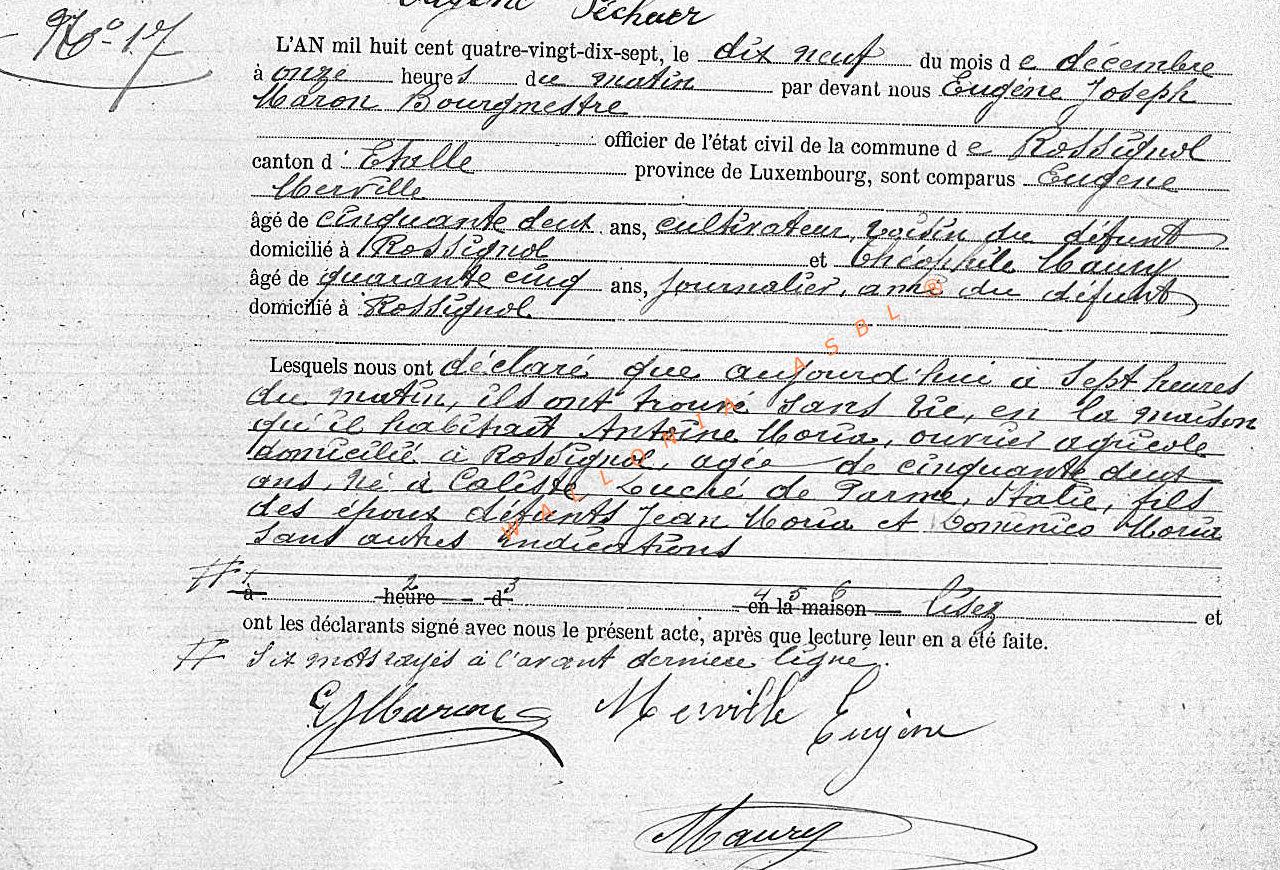 Eugène
N° 17
L'AN mil huit cent quatre-vingt-dix-sept, le dix neuf du mois d e décembre
à onze heure s du matin par devant nous Eugène Joseph
Maron Bourgmestre
officier de l'état civil de la commune d e Rossignol
canton d' Etalle province de Luxembourg, sont comparus Eugène
Merville
âgé de cinquante deux ans, cultivateur, voisin du défunt
domicilié à Rossignol et Théophile Maury
âgé de quarante cinq ans, journalier, ami du défunt
domicilié à Rossignol
Lesquels nous ont déclaré que aujourd'hui à sept heures
du matin, ils ont trouvé sans vie, en la maison
qu'il habitait Antoine Moria, ouvrier agricole
domicilié à Rossignol, agée de cinquante deux
ans, né à Caliste, Duché de Parme, Italie, fils
des époux défunts Jean Moria et Dominica Moria
sans autres indications
# 1 2 3 4 5 6
à heure d en la maison lisez et
ont les déclarants signé avec nous le présent acte, après que lecture leur en a été faite.
# Six mots rayés à l'avant dernière ligne.
EJMaron Merville
Eugène
Maury
WALLONIA ASBL ®